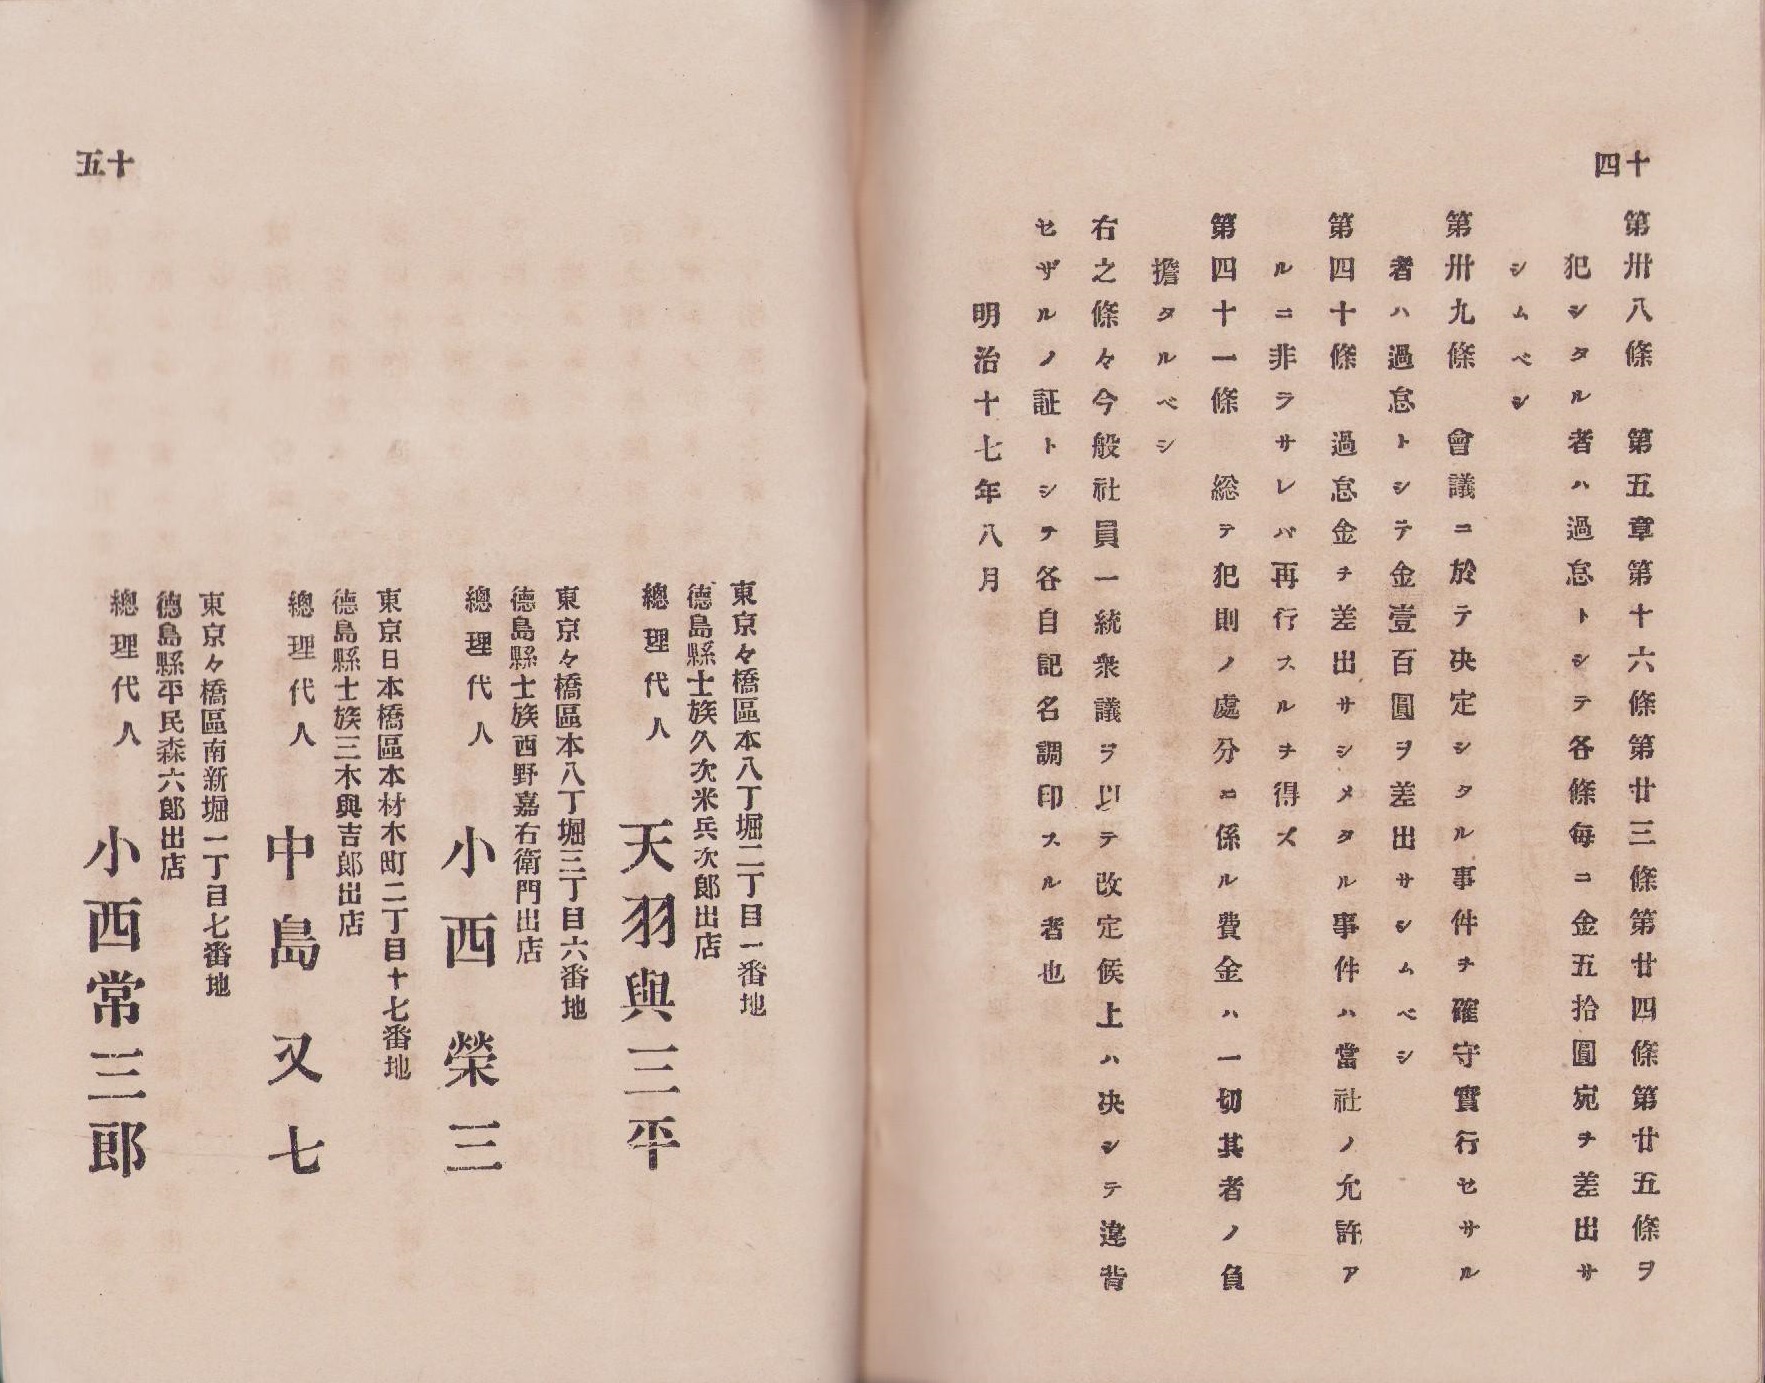 十四
第卅八條　第五章第十六條第廿三條第廿四條第廿五條ヲ
犯シタル者ハ過怠トシテ各條毎ニ金五拾圓宛ヲ差出サ
シムベシ
第卅九條　會議ニ於テ决定シタル事件ヲ確守實行セサル
者ハ過怠トシテ金壹百圓ヲ差出サシムベシ
第四十條　過怠金ヲ差出サシメタル事件ハ當社ノ允許ア
ルニ非ラサレバ再行スルヲ得ズ
第四十一條　総テ犯則ノ處分ニ係ル費金ハ一切其者ノ負
擔タルベシ
右之條々今般社員一統衆議ヲ以テ改定候上ハ决シテ違背
セザルノ証トシテ各自記名調印スル者也
明治十七年八月
十五
東京々橋區本八丁堀二丁目一番地
德島縣士族久次米兵次郎出店
總理代人　天羽與三平
東京々橋區本八丁堀三丁目六番地
德島縣士族西野嘉右衛門出店
總理代人　小西榮三
東京日本橋區本材木町二丁目十七番地
德島縣士族三木與吉郎出店
總理代人　中島又七
東京々橋區南新堀一丁目七番地
德島縣平民森六郎出店
總理代人　小西常三郎